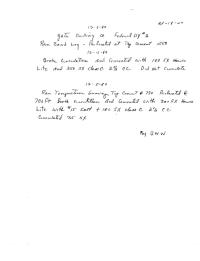 12-3-80
Gate Drilling Co Federal Of #2
Ran Bond Log - Perforated at Top Cement 1150
12-4-80
Broke Circulation and Cemented with 100 SX Howco
Lite and 250 SX Class C 2% CC Did not Circulate
12-5-80
Ran Temperature Survey, Top Cement @ 750 Perforated @
700 Ft Broke Circulation and Cemented with 200 SX Howco
Lite with #15 Salt + 100 SX Class C 2% CC
Circulated 75 SX
By G.W.W